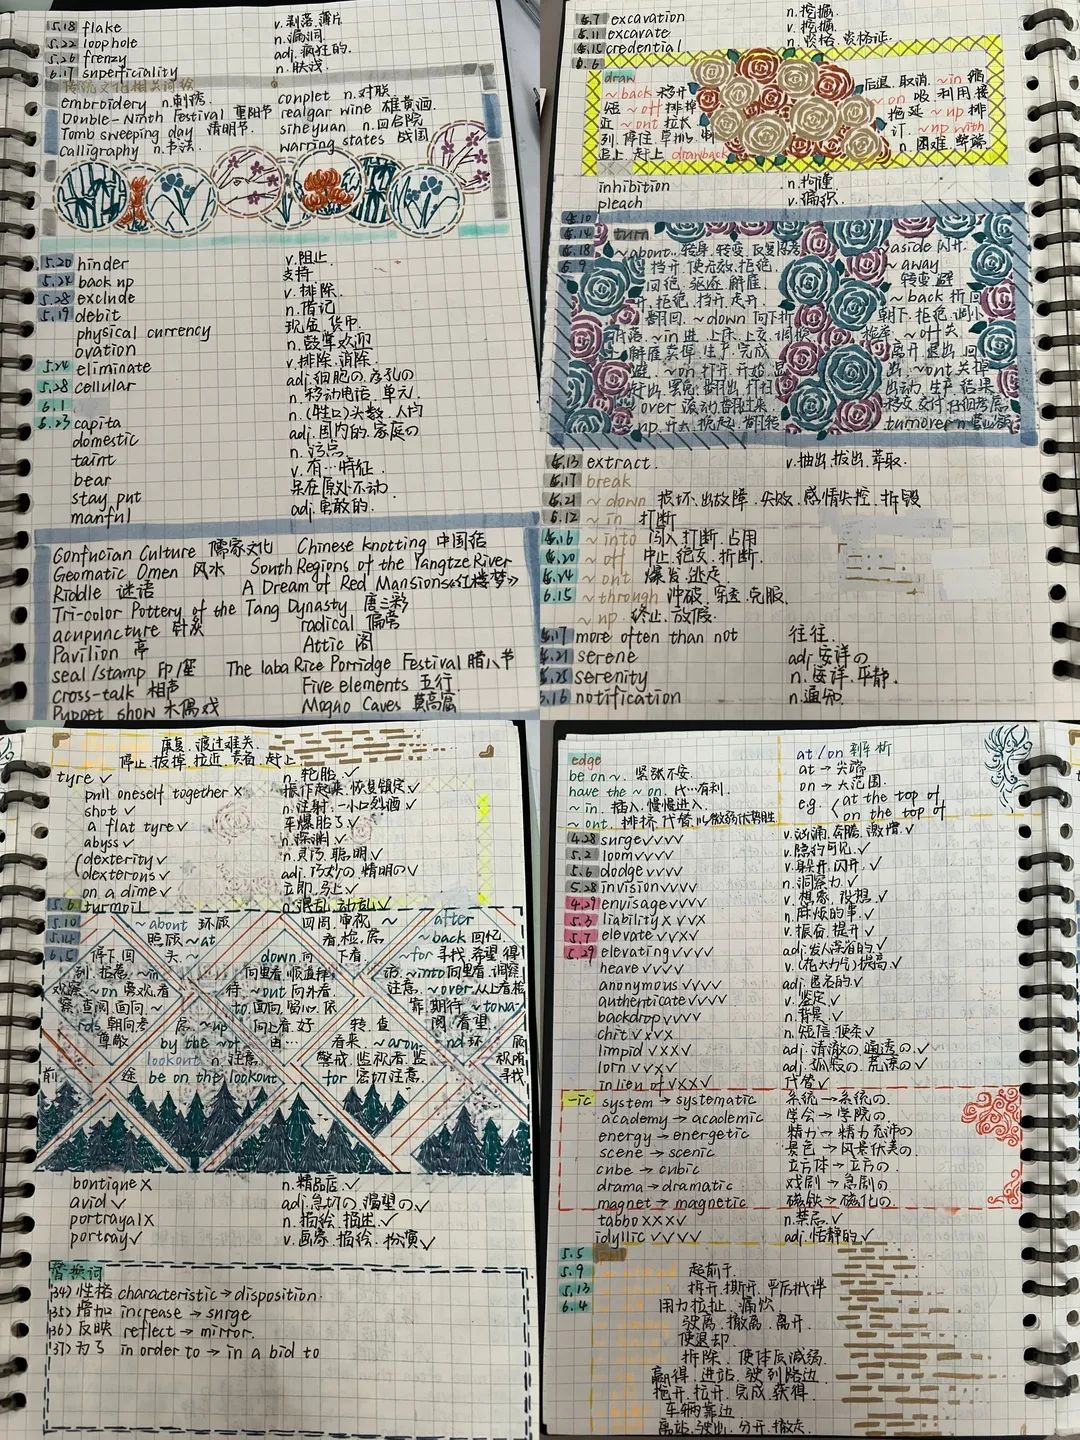 5.18 flake v.剥落.薄片
5.22 loophole n.漏洞.
5.26 frenzy adj.疯狂的.
6.17 superficiality n.肤浅.
传统文化相关词绘
embroidery n.刺绣. conplet n.对联
Double-Ninth Festival 重阳节 realgar wine 雄黄酒.
Tomb sweeping day 清明节. siheyuan n.四合院
calligraphy n.书法. warring states 战国
5.20 hinder v.阻止.
5.24 back up 支持.
5.28 exclude v.排除.
5.19 debit n.借记
physical currency 现金.货币.
ovation n.鼓掌欢迎
5.24 eliminate v.排除.消除.
5.28 cellular adj.细胞の.多孔の
6.1 n.移动电话.单元.
6.23 capita n.(牲口)头数.人均
domestic adj.国内的.家庭の
taint n.污点.
bear v.有…特征.
stay put 呆在原处不动.
manful adj.勇敢的.
Confucian Culture 儒家文化 Chinese knotting 中国结
Geomatic Omen 风水 South Regions of the Yangtze River
Riddle 谜语 A Dream of Red Mansions《红楼梦》
Tri-color Pottery of the Tang Dynasty 唐三彩
acupuncture 针灸 radical 偏旁
Pavilion 亭 Attic 阁
seal/stamp 印/玺 The laba Rice Porridge Festival 腊八节
cross-talk 相声 Five elements 五行
Puppet show 木偶戏 Mogao Caves 莫高窟
5.7 excavation n.挖掘.
5.11 excavate v.挖掘.
5.15 credential n.资格.资格证.
6.6
draw 后退.取消.~in 缩
~back 移开 ~on 吸.利用.接
短 ~off 排掉 拖延 ~up 排
近 ~out 拉长 订. ~up with
列.停住.草拟. n.困难.弊端.
追上.赶上 drawback
inhibition n.拘谨
pleach v.编织.
5.10
5.14 turn
5.18 ~about..转身.转变.反复思考 aside 闪开.
6.9 挡开.使无效.拒绝. ~away
回绝.驱逐.解雇 转变.避
开.拒绝.挡开.走开 ~back 折回
翻回.~down 向下折 朝下.拒绝.调小
~in 进.上床.上交.调换 检举. ~off 关.
解雇.卖掉.生产.完成 离开.退出.回
避. ~on 打开.开始.显 出.~out 关掉
出动.生产.结果
over 滚动.翻过来 移交.交付.仔细考虑
~up 开大 翻转 turnover n.营业额
5.13 extract. v.抽出.拔出.萃取.
5.17 break
5.21 ~down 损坏.出故障.失败.感情失控.拆毁
6.12 ~in 打断
5.16 ~into 闯入.打断.占用
5.20 ~off 中止.绝交.折断.
5.24 ~out 爆发.逃走.
6.15 ~through 冲破.穿透.克服.
~up 终止.放假.
5.17 more often than not 往往.
5.21 serene adj.安详の
5.25 serenity n.安详.平静.
6.16 notification n.通知.
康复.渡过难关.
停止.拔掉.拉近.责备.赶上
tyre✓ n.轮胎.✓
pull oneself together× 振作起来.恢复镇定✓
shot✓ n.注射.一小口烈酒✓
a flat tyre✓ 车爆胎了✓
abyss✓ n.深渊✓
(dexterity✓ n.灵巧.聪明✓
dexterous✓ adj.巧妙の.精明の✓
on a dime✓ 立即.马上✓
5.6 turmoil n.混乱.动乱✓
5.10 ~about 环顾 四周.审视 ~ after
5.14 照顾 ~at 看.检.虑 ~back 回忆
6.5 停下.回 头 ~ down 向 下看 ~for 寻找.希望得
到.指点. ~in 向里看.顺道拜 访. ~into 向里看.调察
观察. ~on 旁观.看 待. ~out 向外看. 注意. ~over 从上看.检
察.查阅.面向. ~ to 面向.留心.依 靠.期待. ~towa-
rds 朝向.考 虑. ~up 向上看.好 转.查 阅.看望.
尊敬 by the ~of 由… 看来. ~aroun- nd 环 顾
lookout n.注意. 警戒.监视者.监 视所.
前 途 be on the lookout for 密切注意. 寻找.
boutique× n.精品店.✓
avid✓ adj.急切の.渴望の✓
portrayal× n.描绘.描述.✓
portray✓ v.画像.描绘.扮演✓
替换词
34) 性格 characteristic→disposition.
35) 增加 increase→surge
36) 反映 reflect→mirror.
37) 为了 in order to→in a bid to
edge at/on 剖析
be on~. 紧张不安. at→尖端
have the~on. 比…有利. on→大范围.
~in. 插入.慢慢进入. eg. at the top of
~out. 排挤.代替.以微弱优势胜 on the top of
4.28 surge✓✓✓✓ v.汹涌.奔腾.激增✓
5.2 loom✓✓✓✓ v.隐约可见.✓
5.6 dodge✓✓✓✓ v.躲开.闪开.✓
5.28 invision✓✓✓✓ n.洞察力.✓
4.29 envisage✓✓✓✓ v.想象.设想.✓
5.3 liability×✓✓× n.麻烦的事.✓
5.7 elevate✓✓×✓ v.振奋.提升✓
5.29 elevating✓✓✓✓ adj.发人深省的✓
heave✓✓✓✓ v.(花大力气)提高.✓
anonymous✓✓✓✓ adj.匿名的.✓
authenticate✓✓✓✓ v.鉴定✓
backdrop✓✓✓✓ n.背景.✓
chit✓×✓× n.短信.便条✓
limpid✓××✓ adj.清澈の.通透の.✓
lorn✓✓×✓ adj.孤寂の.荒凉の✓
in lieu of✓××✓ 代替✓
-ic system→systematic 系统→系统の.
academy→academic 学会→学院の
energy→energetic 精力→精力充沛の
scene→scenic 景色→风景优美の.
cube→cubic 立方体→立方の.
drama→dramatic 戏剧→急剧の
magnet→magnetic 磁铁→磁化の.
tabbo×××✓ n.禁忌.✓
idyllic✓✓✓✓ adj.恬静的✓
5.5 pull
5.9 赶前于.
5.13 拆开.撕开.严厉批评
6.4 用力拉扯.痛饮.
驶离.撤离.离开.
使退却.
拆除.使体质减弱.
赢得.进站.驶到路边
拖开.拉开.完成.获得.
车辆靠边
离站.驶出.分开.撤走.